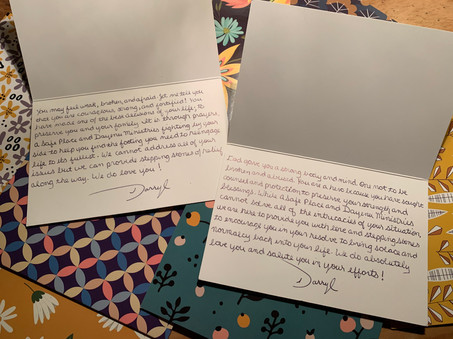 You may feel weak, broken, and afraid. Let me tell you
that you are courageous, strong, and fortified! You
have made one of the best decisions of your life; to
preserve you and your family. It is through prayers,
a Safe Place and Dayenu Ministries fighting by your
side to help you find the footing you need to reengage
life to its fullest. We cannot address all of your
issues but we can provide stepping stones of relief
along the way. We do love you!
Darryl
God gave you a strong body and mind. One not to be
broken and abused. You are a hero because you have sought
counsel and protection to preserve yourself and
blessings. While a Safe Place and Dayenu Ministries
cannot solve all of the intricacies of your situation
we are here to provide you with love and stepping stones
to encourage you in your resolve to bring solace and
normalcy back into your life. We do absolutely
love you and salute you in your efforts!
Darryl